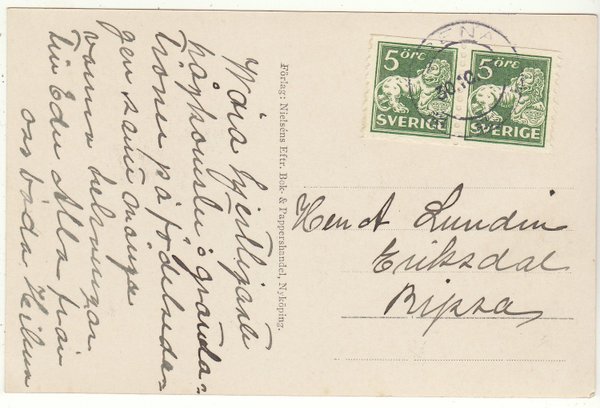 Våra hjertligaste
lyckönskn: grånda:
troner på födelseda-
gen samt många
varma helsningar
till Eder Alla från
oss båda Hilma
Förlag: Nielséns Eftr. Bok- & Pappershandel, Nyköping.
5 ÖRE
SVERIGE
5 ÖRE
SVERIGE
30.10
Herr A Lundin
Eriksdal
Ripsa